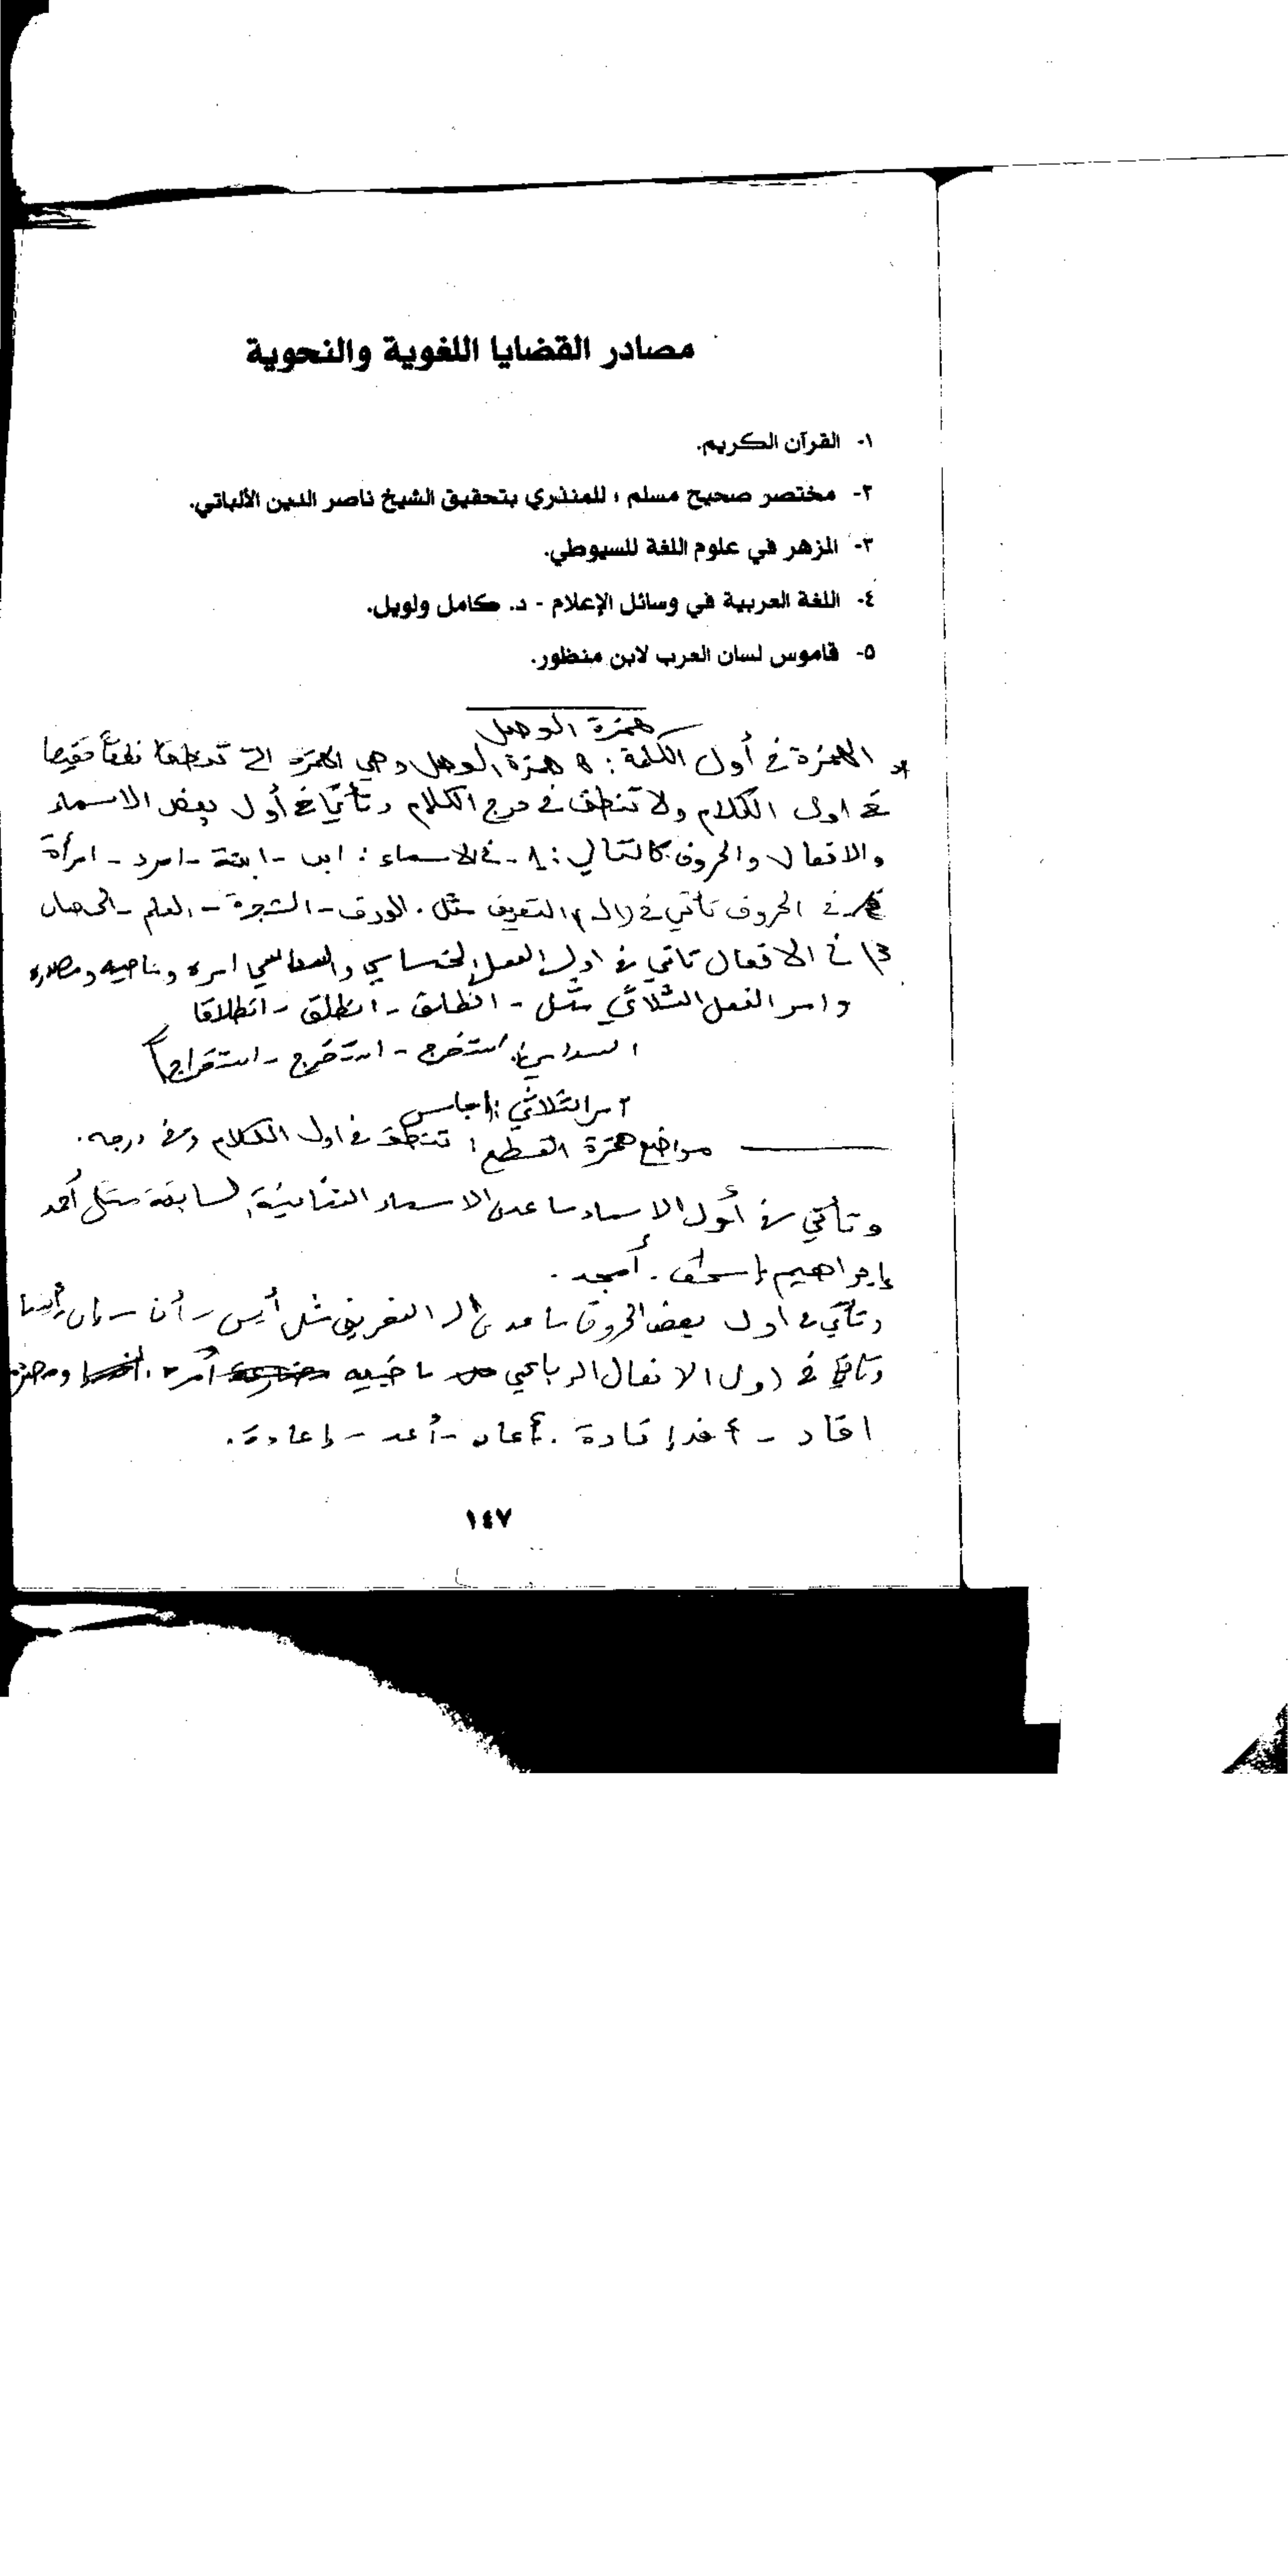 مصادر القضايا اللغوية والنحوية
١- القرآن الكريم.
٢- مختصر صحيح مسلم ، للمنذري بتحقيق الشيخ ناصر الدين الألباني.
٣- المزهر في علوم اللغة للسيوطي.
٤- اللغة العربية في وسائل الإعلام - د. كامل ولويل.
٥- قاموس لسان العرب لابن منظور.
همزة الوصل
* الهمزة في أول الكلمة : همزة الوصل وهي الهمزة التي تنطقها نطقاً
في اول الكلام ولا تنطق في درج الكلام وتأتي في أول بعض الاسماء
والافعال والحروف كالتالي : ١- في الاسماء : ابن - ابنة - امرء - امرأة
في الحروف تأتي في ال التعريف مثل . الورق - الشجرة - العلم - الحصان
٣) في الافعال تاتي في اول الفعل الخماسي والسداسي امره وماضيه ومصدره
وامر الفعل الثلاثي مثل - انطلق - انطلق - انطلاقا
السداسي : استخرج - استخرج - استخراجاً
امر الثلاثي : اجلس
مواضع همزة القطع : تنطق في اول الكلام وفي درجه .
وتأتي في أول الاسماء ما عدى الاسماء السابقة مثل أحمد
إبراهيم إسحق . أمجد .
وتأتي في اول بعض الحروف ما عدى ال التعريف مثل أيس - أن - إن
وتأتي في اول الافعال الرباعي ماضيه أمره
افاد - أفد إفادة . أعاد - أعد - إعادة .
١٤٧